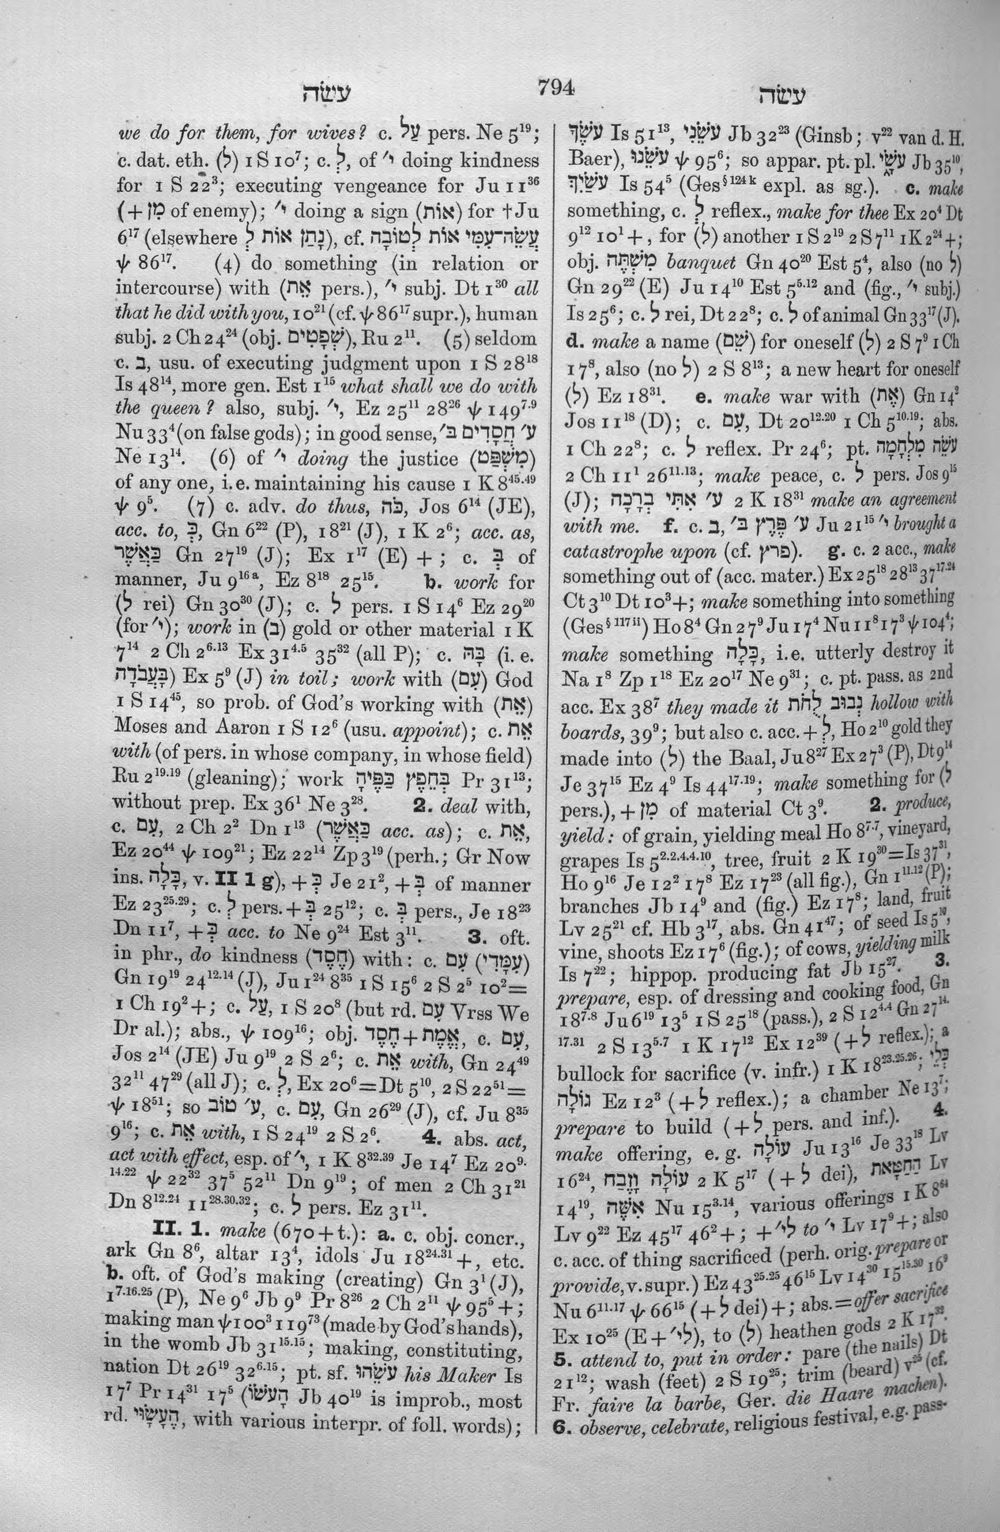 עשׂה
794
עשׂה
we do for them, for wives? c. עַל pers. Ne 5¹⁹;
c. dat. eth. (לְ) 1 S 10⁷; c. לְ, of י׳ doing kindness
for 1 S 22³; executing vengeance for Ju 11³⁶
(+ מִן of enemy); י׳ doing a sign (אוֹת) for †Ju
6¹⁷ (elsewhere נָתַן אוֹת לְ), cf. עֲשֵׂה־עִמִּי אוֹת לְטוֹבָה
ψ 86¹⁷. (4) do something (in relation or
intercourse) with (אֵת pers.), י׳ subj. Dt 1³⁰ all
that he did with you, 10²¹ (cf. ψ 86¹⁷ supr.), human
subj. 2 Ch 24²⁴ (obj. שְׁפָטִים), Ru 2¹¹. (5) seldom
c. בְּ, usu. of executing judgment upon 1 S 28¹⁸
Is 48¹⁴, more gen. Est 1¹⁵ what shall we do with
the queen? also, subj. י׳, Ez 25¹¹ 28²⁶ ψ 149⁷·⁹
Nu 33⁴ (on false gods); in good sense, ע׳ חֲסָדִים בּ׳
Ne 13¹⁴. (6) of י׳ doing the justice (מִשְׁפָּט)
of any one, i.e. maintaining his cause 1 K 8⁴⁵·⁴⁹
ψ 9⁵. (7) c. adv. do thus, כֹּה, Jos 6¹⁴ (JE),
acc. to, כְּ, Gn 6²² (P), 18²¹ (J), 1 K 2⁶; acc. as,
כַּאֲשֶׁר Gn 27¹⁹ (J); Ex 1¹⁷ (E) +; c. בְּ of
manner, Ju 9¹⁶ᵃ, Ez 8¹⁸ 25¹⁵. b. work for
(לְ rei) Gn 30³⁰ (J); c. לְ pers. 1 S 14⁶ Ez 29²⁰
(for י׳); work in (בְּ) gold or other material 1 K
7¹⁴ 2 Ch 2⁶·¹³ Ex 31⁴·⁵ 35³² (all P); c. בָּהּ (i. e.
בָּעֲבֹדָה) Ex 5⁹ (J) in toil; work with (עִם) God
1 S 14⁴⁵, so prob. of God's working with (אֵת)
Moses and Aaron 1 S 12⁶ (usu. appoint); c. אֵת
with (of pers. in whose company, in whose field)
Ru 2¹⁹·¹⁹ (gleaning); work בְּחֵפֶץ כַּפֶּיהָ Pr 31¹³;
without prep. Ex 36¹ Ne 3²⁸. 2. deal with,
c. עִם, 2 Ch 2² Dn 1¹³ (כַּאֲשֶׁר acc. as); c. אֵת,
Ez 20⁴⁴ ψ 109²¹; Ez 22¹⁴ Zp 3¹⁹ (perh.; Gr Now
ins. כָּלָה, v. II 1 g), + כְּ Je 21², + בְּ of manner
Ez 23²⁵·²⁹; c. לְ pers. + בְּ 25¹²; c. בְּ pers., Je 18²³
Dn 11⁷, + כְּ acc. to Ne 9²⁴ Est 3¹¹. 3. oft.
in phr., do kindness (חֶסֶד) with: c. עִם (עִמָּדִי)
Gn 19¹⁹ 24¹²·¹⁴ (J), Ju 1²⁴ 8³⁵ 1 S 15⁶ 2 S 2⁵ 10²=
1 Ch 19² +; c. עַל, 1 S 20⁸ (but rd. עִם Vrss We
Dr al.); abs., ψ 109¹⁶; obj. חֶסֶד + אֱמֶת, c. עִם,
Jos 2¹⁴ (JE) Ju 9¹⁹ 2 S 2⁶; c. אֵת with, Gn 24⁴⁹
32¹¹ 47²⁹ (all J); c. לְ, Ex 20⁶=Dt 5¹⁰, 2 S 22⁵¹=
ψ 18⁵¹; so ע׳ טוֹב, c. עִם, Gn 26²⁹ (J), cf. Ju 8³⁵
9¹⁶; c. אֵת with, 1 S 24¹⁹ 2 S 2⁶. 4. abs. act,
act with effect, esp. of י׳, 1 K 8³²·³⁹ Je 14⁷ Ez 20⁹·
¹⁴·²² ψ 22³² 37⁵ 52¹¹ Dn 9¹⁹; of men 2 Ch 31²¹
Dn 8¹²·²⁴ 11²⁸·³⁰·³²; c. לְ pers. Ez 31¹¹.
II. 1. make (670 + t.): a. c. obj. concr.,
ark Gn 8⁶, altar 13⁴, idols Ju 18²⁴·³¹ +, etc.
b. oft. of God's making (creating) Gn 3¹ (J),
1⁷·¹⁶·²⁵ (P), Ne 9⁶ Jb 9⁹ Pr 8²⁶ 2 Ch 2¹¹ ψ 95⁵ +;
making man ψ 100³ 119⁷³ (made by God's hands),
in the womb Jb 31¹⁵·¹⁵; making, constituting,
nation Dt 26¹⁹ 32⁶·¹⁵; pt. sf. עֹשֵׂהוּ his Maker Is
17⁷ Pr 14³¹ 17⁵ (הָעֹשׂוֹ Jb 40¹⁹ is improb., most
rd. הֶעָשׂוּי, with various interpr. of foll. words);
עֹשֶׂךָ Is 51¹³, עֹשֵׂנִי Jb 32²² (Ginsb; v²² van d. H.
Baer), עֹשֵׂנוּ ψ 95⁶; so appar. pt. pl. עֹשָׂי Jb 35¹⁰,
עֹשַׂיִךְ Is 54⁵ (Ges§¹²⁴ᵏ expl. as sg.). c. make
something, c. לְ reflex., make for thee Ex 20⁴ Dt
9¹² 10¹ +, for (לְ) another 1 S 2¹⁹ 2 S 7¹¹ 1 K 2²⁴ +;
obj. מִשְׁתֶּה banquet Gn 40²⁰ Est 5⁴, also (no לְ)
Gn 29²² (E) Ju 14¹⁰ Est 5⁵·¹² and (fig., י׳ subj.)
Is 25⁶; c. לְ rei, Dt 22⁸; c. לְ of animal Gn 33¹⁷ (J).
d. make a name (שֵׁם) for oneself (לְ) 2 S 7⁹ 1 Ch
17⁸, also (no לְ) 2 S 8¹³; a new heart for oneself
(לְ) Ez 18³¹. e. make war with (אֵת) Gn 14²
Jos 11¹⁸ (D); c. עִם, Dt 20¹²·²⁰ 1 Ch 5¹⁰·¹⁹; abs.
1 Ch 22⁸; c. לְ reflex. Pr 24⁶; pt. עֹשֵׂה מִלְחָמָה
2 Ch 11¹ 26¹¹·¹³; make peace, c. לְ pers. Jos 9¹⁵
(J); ע׳ אִתִּי בְרָכָה 2 K 18³¹ make an agreement
with me. f. c. בְּ, ע׳ פֶּרֶץ בּ׳ Ju 21¹⁵ י׳ brought a
catastrophe upon (cf. פרץ). g. c. 2 acc., make
something out of (acc. mater.) Ex 25¹⁸ 28¹³ 37¹⁷·²⁴
Ct 3¹⁰ Dt 10³ +; make something into something
(Ges§¹¹⁷ⁱⁱ) Ho 8⁴ Gn 27⁹ Ju 17⁴ Nu 11⁸ 17³ ψ 104⁴;
make something כָּלָה, i.e. utterly destroy it
Na 1⁸ Zp 1¹⁸ Ez 20¹⁷ Ne 9³¹; c. pt. pass. as 2nd
acc. Ex 38⁷ they made it נְבוּב לֻחֹת hollow with
boards, 39⁹; but also c. acc. + לְ, Ho 2¹⁰ gold they
made into (לְ) the Baal, Ju 8²⁷ Ex 27³ (P), Dt 9¹⁴
Je 37¹⁵ Ez 4⁹ Is 44¹⁷·¹⁹; make something for (לְ
pers.), + מִן of material Ct 3⁹. 2. produce,
yield: of grain, yielding meal Ho 8⁷·⁷, vineyard,
grapes Is 5²·²·⁴·⁴·¹⁰, tree, fruit 2 K 19³⁰=Is 37³¹,
Ho 9¹⁶ Je 12² 17⁸ Ez 17²³ (all fig.), Gn 1¹¹·¹² (P);
branches Jb 14⁹ and (fig.) Ez 17⁸; land, fruit
Lv 25²¹ cf. Hb 3¹⁷, abs. Gn 41⁴⁷; of seed Is 5¹⁰,
vine, shoots Ez 17⁶ (fig.); of cows, yielding milk
Is 7²²; hippop. producing fat Jb 15²⁷. 3.
prepare, esp. of dressing and cooking food, Gn
18⁷·⁸ Ju 6¹⁹ 13⁵ 1 S 25¹⁸ (pass.), 2 S 12⁴·⁴ Gn 27¹⁴·
¹⁷·³¹ 2 S 13⁵·⁷ 1 K 17¹² Ex 12³⁹ (+ לְ reflex.); a
bullock for sacrifice (v. infr.) 1 K 18²³·²⁵·²⁶; כְּלֵי
גוֹלָה Ez 12³ (+ לְ reflex.); a chamber Ne 13⁷;
prepare to build (+ לְ pers. and inf.). 4.
make offering, e. g. עוֹלָה Ju 13¹⁶ Je 33¹⁸ Lv
16²⁴, עוֹלָה וָזֶבַח 2 K 5¹⁷ (+ לְ dei), הַחַטָּאת Lv
14¹⁹, אִשֶּׁה Nu 15³·¹⁴, various offerings 1 K 8⁶⁴
Lv 9²² Ez 45¹⁷ 46² +; + לַי׳ to י׳ Lv 17⁹ +; also
c. acc. of thing sacrificed (perh. orig. prepare or
provide, v. supr.) Ez 43²⁵·²⁵ 46¹⁵ Lv 14³⁰ 15¹⁵·³⁰ 16⁹
Nu 6¹¹·¹⁷ ψ 66¹⁵ (+ לְ dei) +; abs. = offer sacrifice
Ex 10²⁵ (E + לַי׳), to (לְ) heathen gods 2 K 17³².
5. attend to, put in order: pare (the nails) Dt
21¹²; wash (feet) 2 S 19²⁵; trim (beard) v²⁵ (cf.
Fr. faire la barbe, Ger. die Haare machen).
6. observe, celebrate, religious festival, e.g. pass-